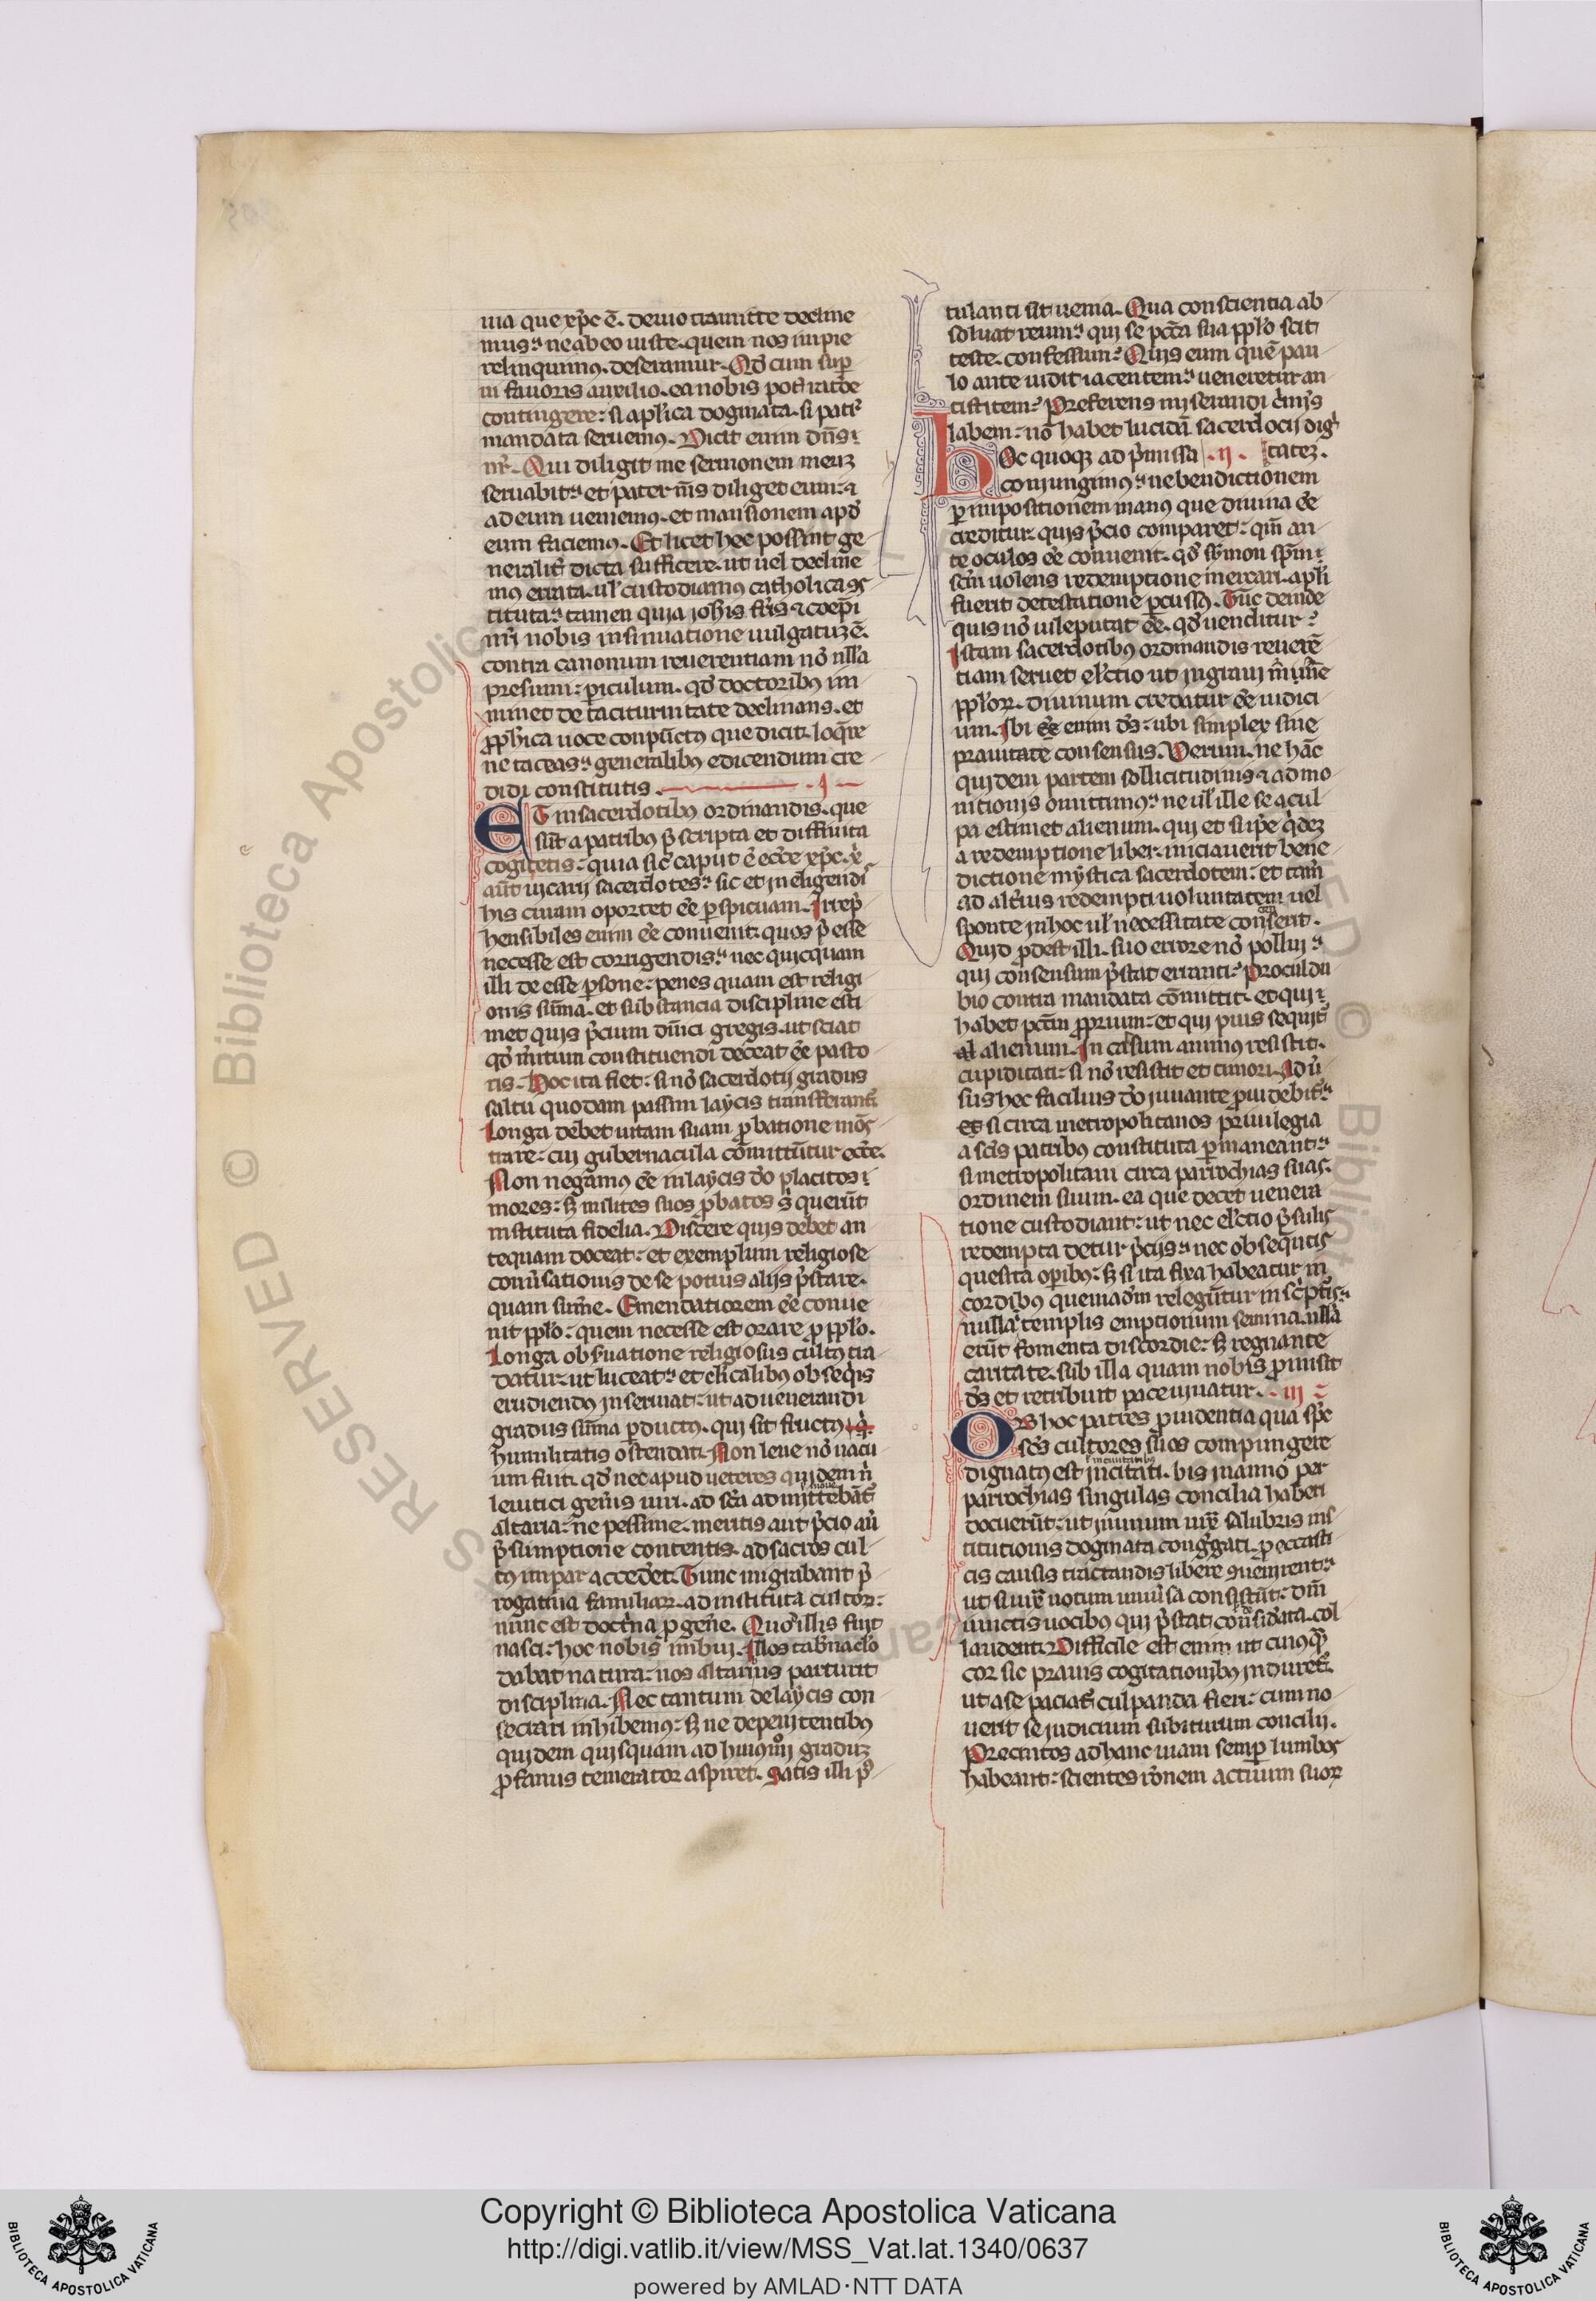 uia que xp̄c ē. deuio tramitte decline
mus: ne ab eo iuste. quem nos impie
relinquimus. deseramur. Qd̄ cum sup̄
ni fauoris auxilio. ea nobis pot̄
contingere: si apl̓ica dogmata. si pat̄
mandata seruemꝰ. Dicit enim dn̄s
nr̄. Qui diligit me sermonem meuꝫ
seruabit: et pater m̄s diliget eum: ⁊
ad eum ueniemꝰ. et mansionem apd̓
eum faciemꝰ. Et licet hec possint ge
neralit̓ dicta sufficere. ut uel decline
mꝰ errata. ul̓ custodiamꝰ catholica ꝯs
tituta: tamen quia johis fr̄is ⁊ coep̄i
nr̄i nobis insinuatione uulgatuꝫ ē.
contra canonum reuerentiam nō nll̓a
presumi: ꝑiculum. qd̓ doctoribꝰ im
minet de taciturnitate declinans. et
ꝓph̓ica uoce conpūctꝰ que dicit. loq̄re
ne taceas: generalibꝰ edicendum cre
didi constitutis. I
ET in sacerdotibꝰ ordinandis. que
sūt a patribꝰ p̄scripta et diffinita
cogitetis: quia sic̓ caput ē ecc̄e xp̄c. x̄
aūt uicarij sacerdotes: sic et in eligendi
his curam oportet eē ꝑspicuam. Irrep̄
hensibiles enim eē conuenit: quos p̄esse
necesse est corrigendis: nec quicquam
illi deesse ꝑsone: penes quam est religi
onis sūma. et substancia discipline esti
met quis p̄cium dn̄ici gregis. ut sciat
qd̓ m̄itum constituendi deceat eē pasto
ris. Hoc ita fiet: si nō sacerdotij gradus
saltu quodam passim laycis transferant̄.
Longa debet uitam suam ꝓbatione mōs
trare: cui gubernacula cōmittūtur ecc̄e.
Non negamꝰ eē in laycis dō placitos
mores: sꝫ milites suos ꝓbatos s̓ querūt
instituta fidelia. Discere quis debet an
tequam doceat: et exemplum religiose
conūsationis de se potius alijs p̄stare.
quam sum̄e. Emendatiorem eē conue
nit pplo: quem necesse est orare ꝓ pplo.
Longa obs̓uatione religiosus cultꝰ tra
datur: ut luceat: et cl̓icalibꝰ obseqijs
erudiendꝰ inseruiat: ut ad uenerandi
gradus sūma ꝑductꝰ. qui sit fructꝰ
humilitatis ostendat. Non leue nō uacu
um fuit. qd̓ nec apud ueteres quidem n̄
leuitici gen̄is uiri. ad sc̄a admittebāt̄
altaria: ne pessime. meritis aut p̄cio aū
p̄sumptione contentis. ad sacros cul
tꝰ impar accederet. Tunc migrabant p̄
rogatiua familiaꝝ. ad instituta cultoꝝ:
nunc est doct̓na ꝓ gen̄e. Quod illis fuit
nasci: hoc nobis imbui. Illos tab̓nacl̓o
dabat natura: nos altarijs parturit
disciplina. Nec tantum de laycis con
secrari inhibemꝰ: sꝫ ne depenitentibꝰ
quidem quisquam ad huiꝰmōi graduꝫ
ꝓfanus temerator aspiret. Satis illi p̄
tulanti sit uenia. Qua conscientia ab
soluat reum: qui se pc̄ca sua pplo scit
teste. confessum? Quis eum quē pau
lo ante uidit iacentem: ueneretur an
tistitem? Preferens miserandi c̓mīs
labem: nō habet lucidū sacerdocij dig
Hec quoqꝫ ad p̄missa II. tateꝫ.
conjungimꝰ: ne bendictionem
ꝑ impositionem manꝰ que diuina eē
creditur. quis p̄cio comparet: qm̄ an
te oculos eē conuenit. qd̓ sȳmon sp̄m
sc̄m uolens redemptione mercari. apl̓i
fuerit detestatione ꝑcussꝰ. Tūc deinde
quis nō uile putat eē. qd̓ uenditur?
Istam sacerdotibꝰ ordinandis reuerē
tiam seruet el̓ctio ut in graui
pploꝝ. diuinum credatur eē iudici
um. Ibi enim ds̄: ubi simplex siue
prauitate consensus. Verum. ne hāc
quidem partem sollicitudinis ⁊ admo
nitionis omittimꝰ: ne ul̓ ille se a cul
pa estimet alienum. qui et si ip̄e q̓deꝫ
a redemptione liber. iniciauerit bene
dictione mystica sacerdotem: et tam̄
ad alt̓ius redempti uoluntatem uel
sponte in hoc ul̓ necessitate consent.
Quid ꝓdest illi. suo errore nō pollui:
qui consensum p̄stat erranti? Procul du
bio contra mandata cōmittit. et qui
habet pc̄cm ꝓprium: et qui pius sequit̓
alienum. In casum animꝰ resistit.
cupiditati: si nō resistit et timori. Adū
sus hec facilius dō iuuante ꝓuidebit̓:
et si circa metropolitanos priuilegia
a sc̄is patribꝰ constituta ꝑmaneant:
si metropolitani circa parrochias suas.
ordinem suum. ea que decet uenera
tione custodiant: ut nec el̓ctio p̄sulis
redempta detur p̄cijs: nec obsequijs
quesita oꝑibꝰ: sꝫ si ita fixa habeatur in
cordibꝰ quemadm̄ relegūtur in sc̓ptis:
nulla templis emptionum semina. nll̓a
erūt fomenta discordie: sꝫ regnante
caritate. sub illa quam nobis ꝓmisit
ds̄ et retribuit pace uiuatur. III
Os hoc patres ꝓuidentia qua sp̄c
sc̄s cultores suos compungere
dignatꝰ est incitati. bis in annō per
parrochias singulas concilia haberi
docuerūt: ut in unum ure salubris ins
titutionis dogmata cong̓gati. ꝑ eccasti
cis causis tractandis libere quenirent:
ut si iux̄ uotum uniūsa consistūt. dm̄
iunctis uocibꝰ qui p̄stat considerata. col
laudent. Difficile est enim ut cuiusqꝫ
cor sic prauis cogitationibꝰ induret̓.
ut a se paciat̓ culpanda fieri: cum no
uerit se judicium subiturum concilij.
Precintos ad hanc uiam semꝑ lumbos
habeant: scientes rōnem actuum suoꝝ
Copyright © Biblioteca Apostolica Vaticana
http://digi.vatlib.it/view/MSS_Vat.lat.1340/0637
powered by AMLAD·NTT DATA